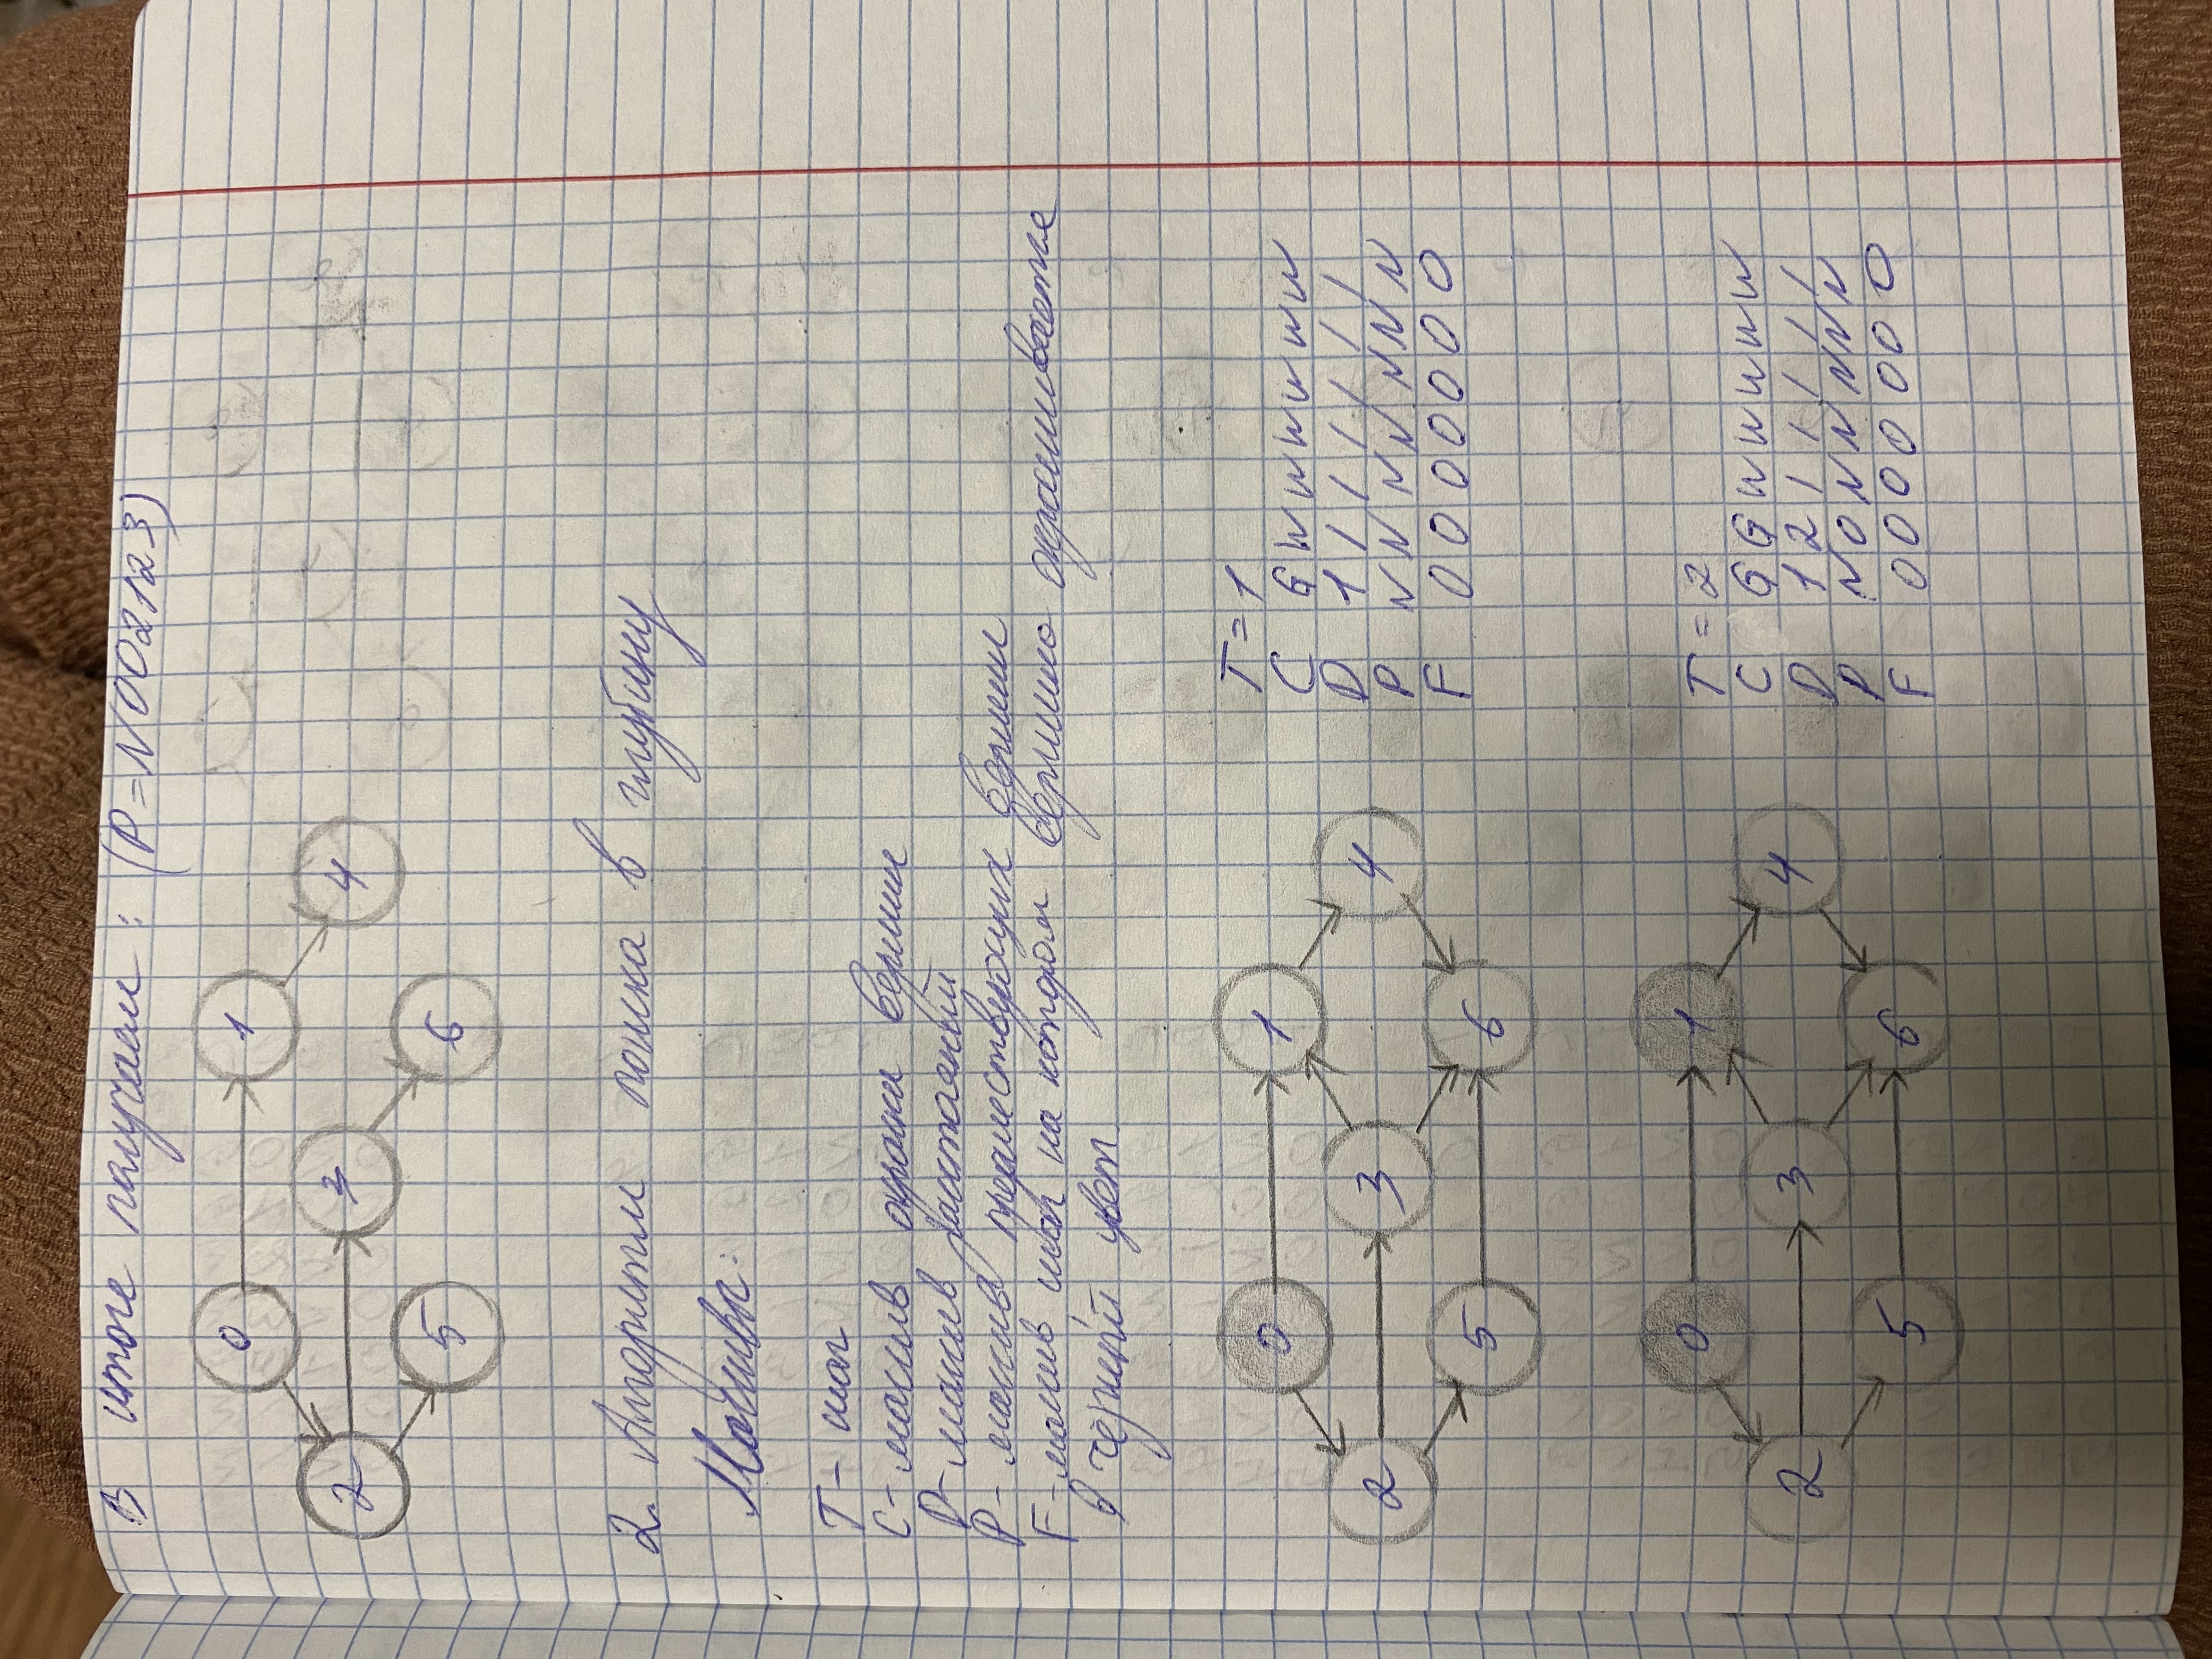 В итоге получаем: (P=N002123)
0 1
2 3 4
5 6
2. Алгоритм поиска в глубину
Массивы:
T - шаг
C - массив окраски вершин
D - массив расстояний
P - массив предшествующих вершин
F - массив, шаг на котором вершина окрашивается
в чёрный цвет.
0 1
2 3 4
5 6
T = 1
C G W W W W W W
D 1 / / / / / /
P N N N N N N N
F 0 0 0 0 0 0 0
0 1
2 3 4
5 6
T = 2
C G G W W W W W
D 1 2 / / / / /
P N 0 N N N N N
F 0 0 0 0 0 0 0